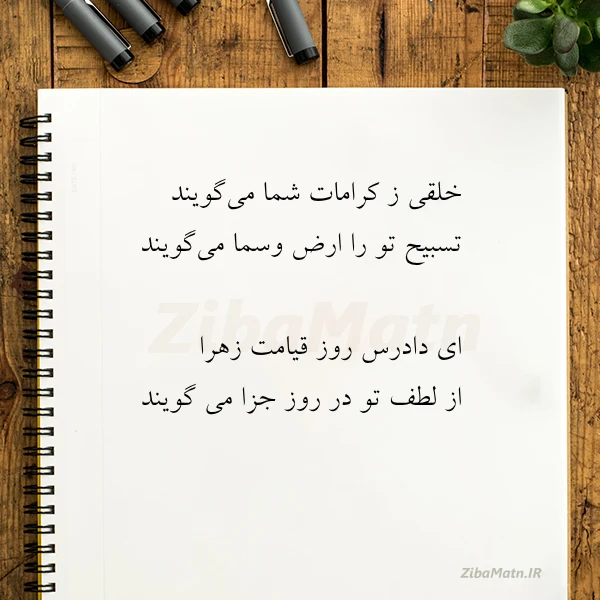 خلقی ز کرامات شما می‌گویند
تسبیح تو را ارض وسما می‌گویند
ZibaMatn
ای دادرس روز قیامت زهرا
از لطف تو در روز جزا می گویند
ZibaMatn.IR